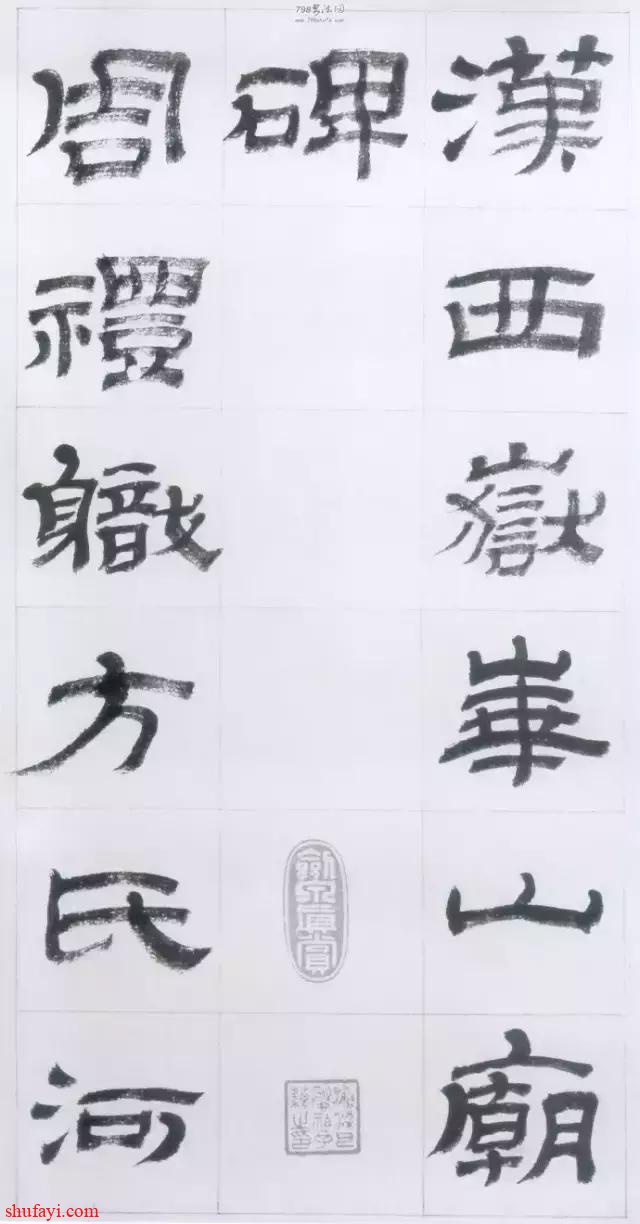 798书法网
漢西嶽華山廟
碑
周禮職方氏河
shufayi.com